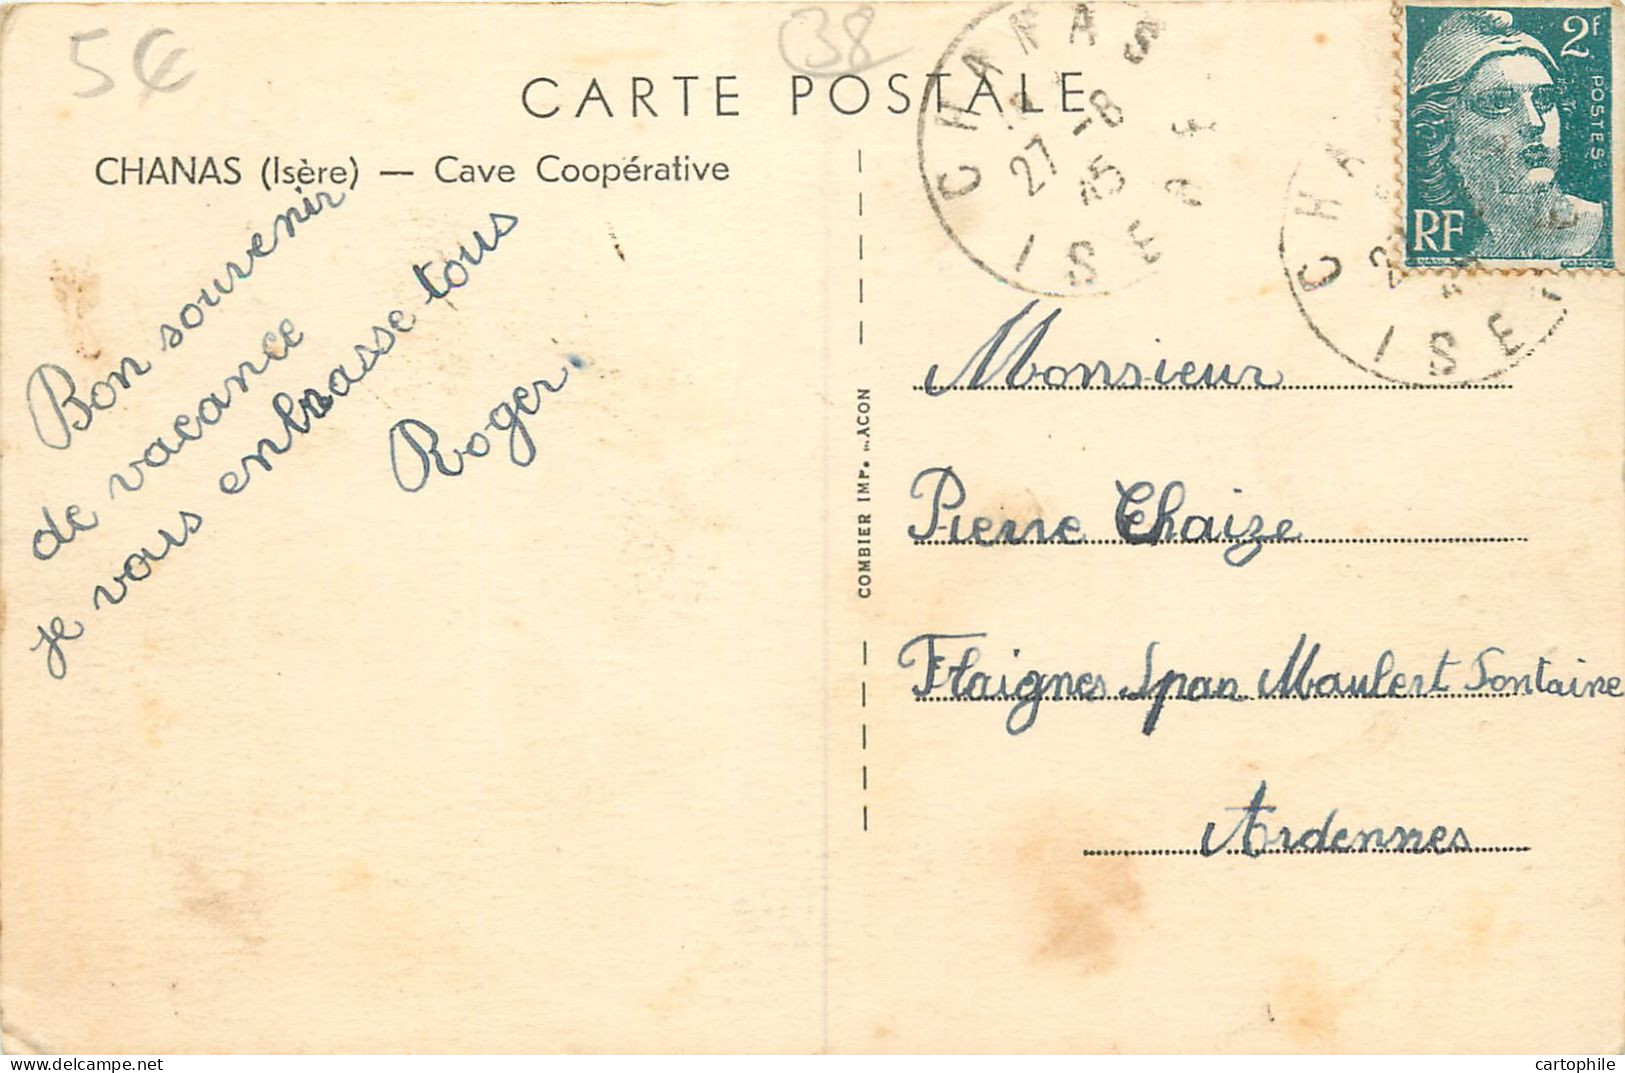 5€
38
CARTE POSTALE
CHANAS (Isère) — Cave Coopérative
CHANAS
27 -8
45
ISERE
2F
POSTES
RF
CHA
ISE
Bon souvenir
de vacance
je vous enbrasse tous
Roger.
COMBIER IMP. MACON
Monsieur
Pierre Chaize
Flaignes par Maubert Fontaine
Ardennes
cartophile